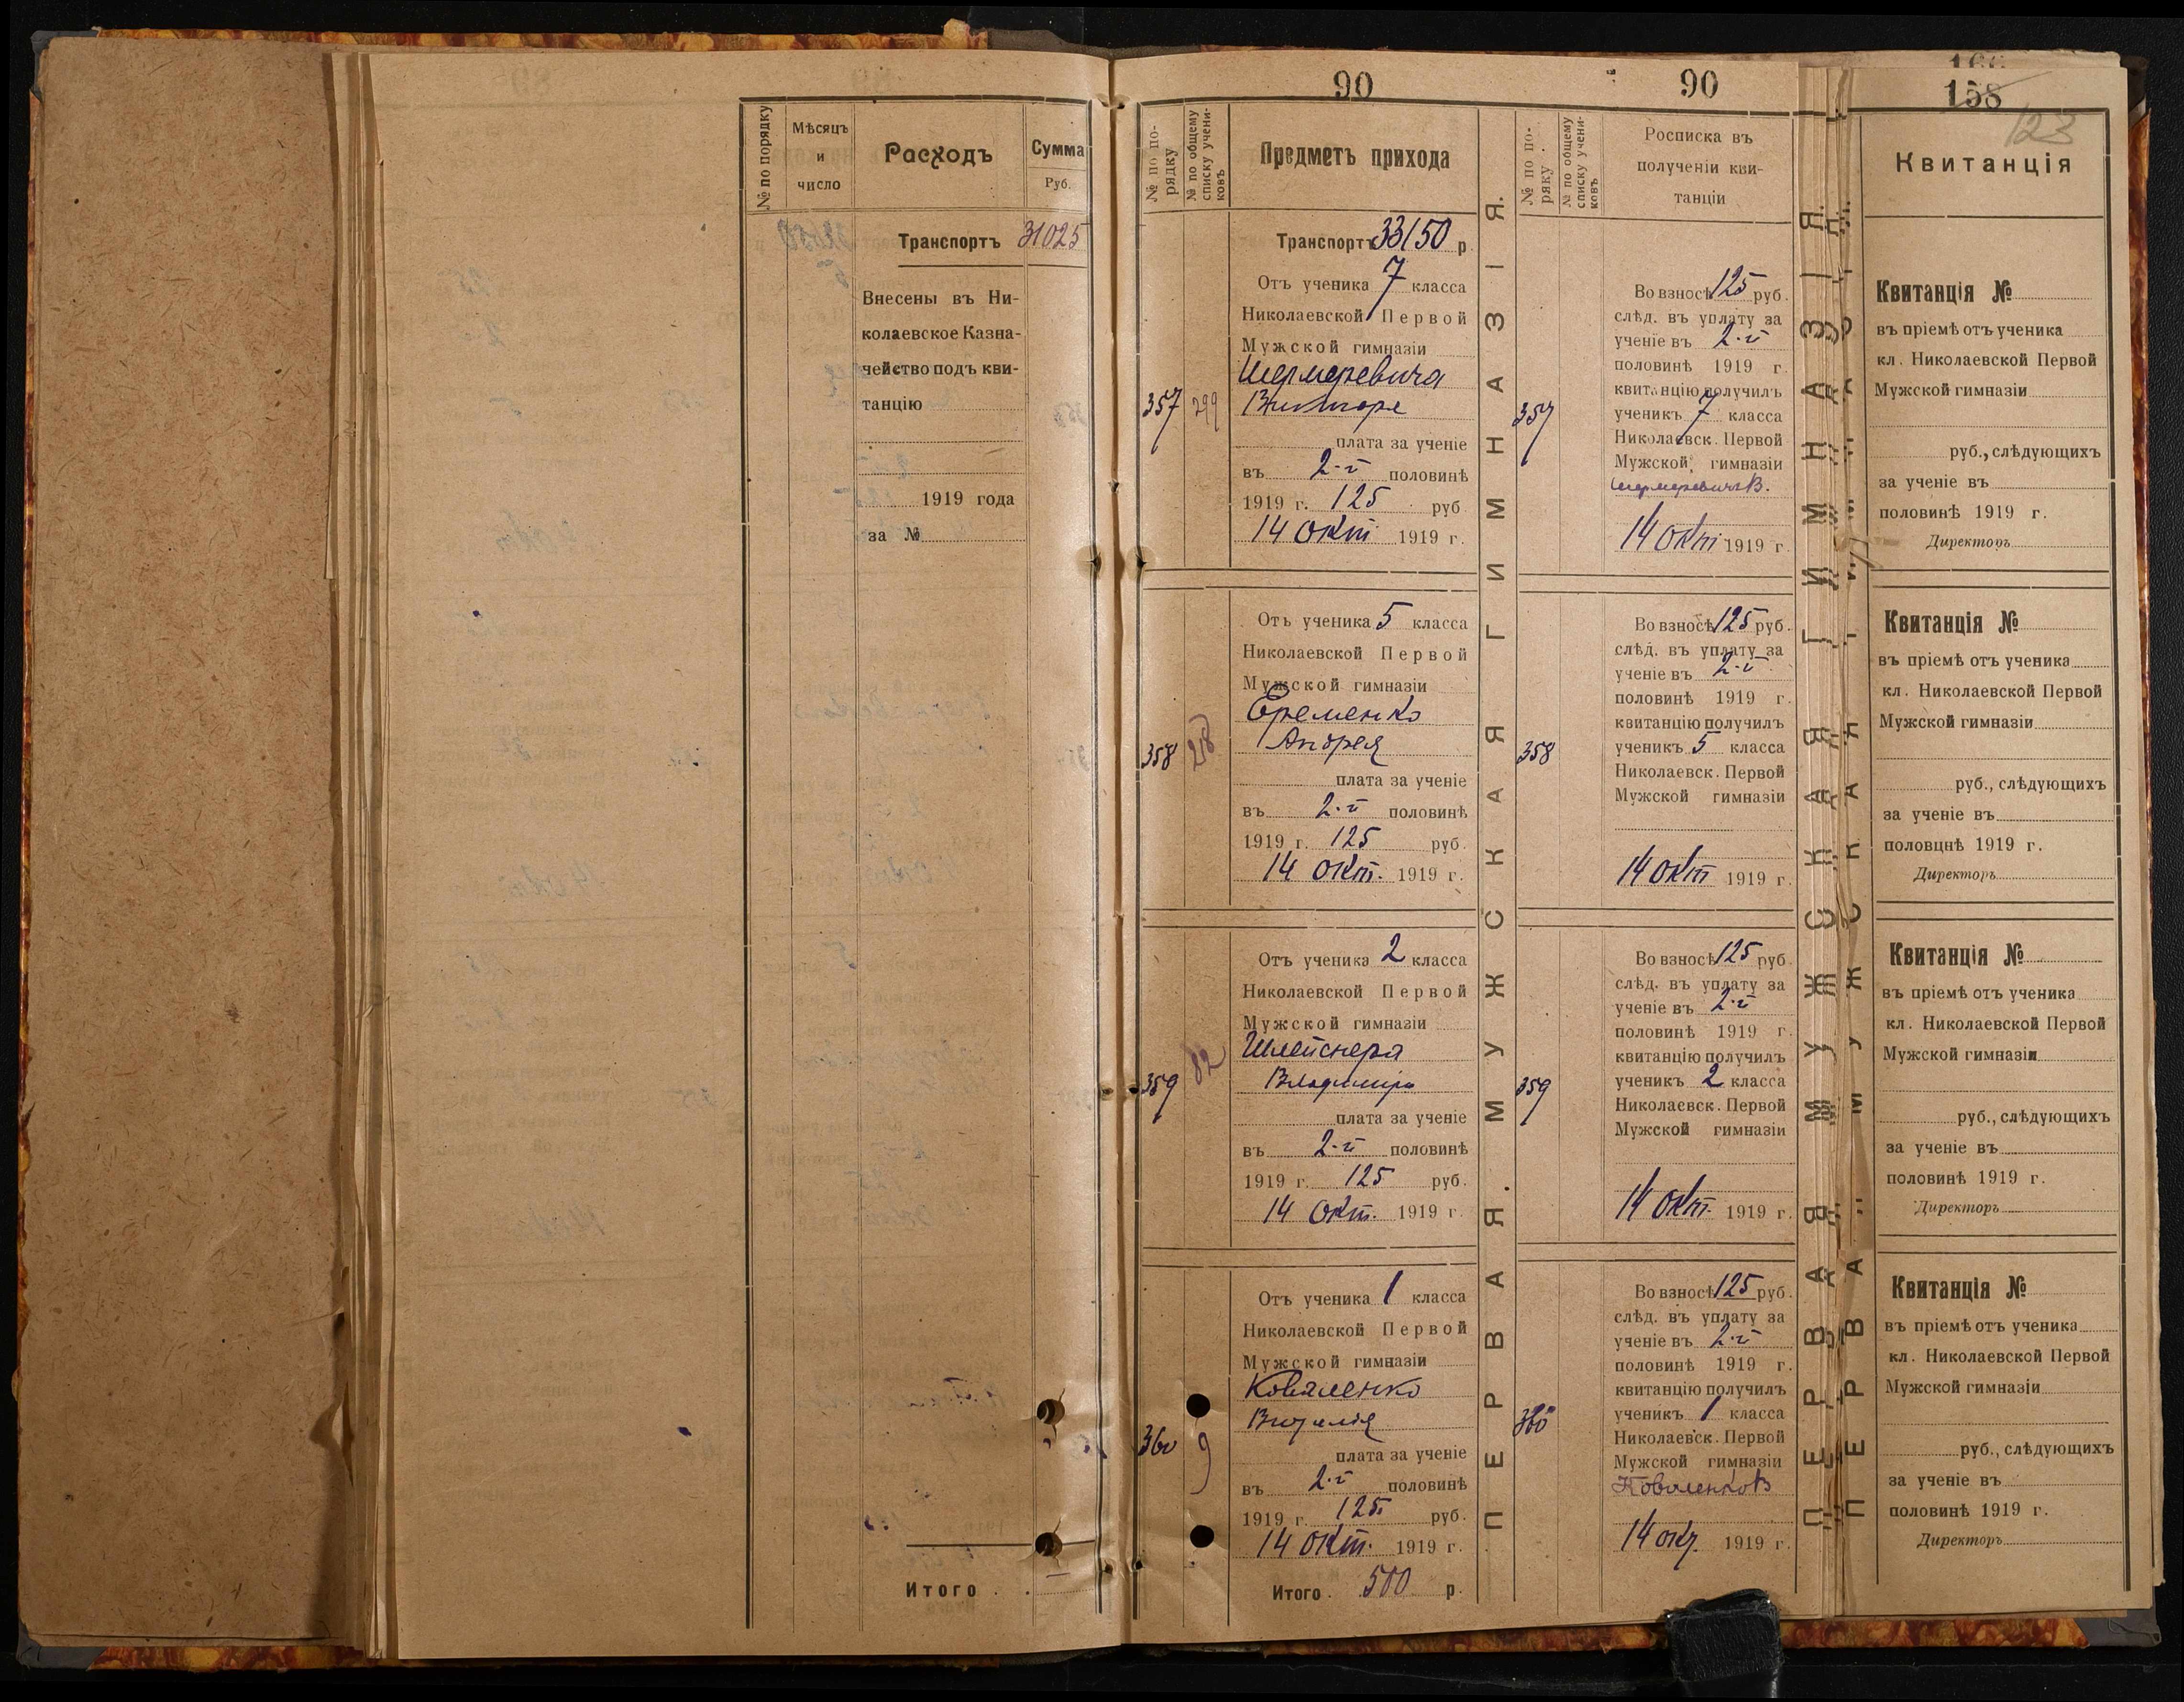 № по порядку
Мѣсяцъ
и
число
Расходъ
Сумма
Руб.
Транспортъ 31025
Внесены въ Ни-
колаевское Казна-
чейство подъ кви-
танцію
1919 года
за №
Итого .
90
№ по по-
рядку
№ по общему
списку учени-
ковъ
Предметъ прихода
Транспортъ 33150 р.
357
299
Отъ ученика 7 класса
Николаевской Первой
Мужской гимназіи
Шермеревича
Виктора
плата за ученіе
въ 2-й половинѣ
1919 г. 125 руб
14 Окт. 1919 г.
358
218
Отъ ученика 5 класса
Николаевской Первой
Мужской гимназіи
Еременко
Андрея
плата за ученіе
въ 2-й половинѣ
1919 г. 125 руб.
14 окт. 1919 г.
359
82
Отъ ученика 2 класса
Николаевской Первой
Мужской гимназіи
Шлейснера
Владимира
плата за ученіе
въ 2-й половинѣ
1919 г. 125 руб.
14 окт. 1919 г.
360
9
Отъ ученика 1 класса
Николаевской Первой
Мужской гимназіи
Коваленко
Виталія
плата за ученіе
въ 2-й половинѣ
1919 г. 125 руб.
14 окт. 1919 г.
Итого . 500 р.
ПЕРВАЯ МУЖСКАЯ ГИМНАЗІЯ.
90
№ по по-
ряку .
№ по общему
списку учени-
ковъ
Росписка въ
полученіи кви-
танціи
357
Во взносѣ 125 руб.
слѣд. въ уплату за
ученіе въ 2-й
половинѣ 1919 г.
квитанцію получилъ
ученикъ 7 класса
Николаевск. Первой
Мужской гимназіи
Шермеревичъ В.
14 Окт 1919 г.
358
Во взносѣ 125 руб.
слѣд. въ уплату за
ученіе въ 2-й
половинѣ 1919 г.
квитанцію получилъ
ученикъ 5 класса
Николаевск. Первой
Мужской гимназіи
14 Окт 1919 г.
359
Во взносѣ 125 руб.
слѣд. въ уплату за
ученіе въ 2-й
половинѣ 1919 г.
квитанцію получилъ
ученикъ 2 класса
Николаевск. Первой
Мужской гимназіи
14 Окт. 1919 г.
360
Во взносѣ 125 руб.
слѣд. въ уплату за
ученіе въ 2-й
половинѣ 1919 г.
квитанцію получилъ
ученикъ 1 класса
Николаевск. Первой
Мужской гимназіи
Коваленко В
14 окт. 1919 г.
ПЕРВАЯ МУЖСКАЯ ГИМНАЗІЯ.
158
123
Квитанція
Квитанція №
въ пріемѣ отъ ученика
кл. Николаевской Первой
Мужской гимназіи
руб., слѣдующихъ
за ученіе въ
половинѣ 1919 г.
Директоръ
Квитанція №
въ пріемѣ отъ ученика
кл. Николаевской Первой
Мужской гимназіи
руб., слѣдующихъ
за ученіе въ
половцнѣ 1919 г.
Директоръ
Квитанція №
въ пріемѣ отъ ученика
кл. Николаевской Первой
Мужской гимназіи
руб., слѣдующихъ
за ученіе въ
половинѣ 1919 г.
Директоръ
Квитанція №
въ пріемѣ отъ ученика
кл. Николаевской Первой
Мужской гимназіи
руб., слѣдующихъ
за ученіе въ
половинѣ 1919 г.
Директоръ